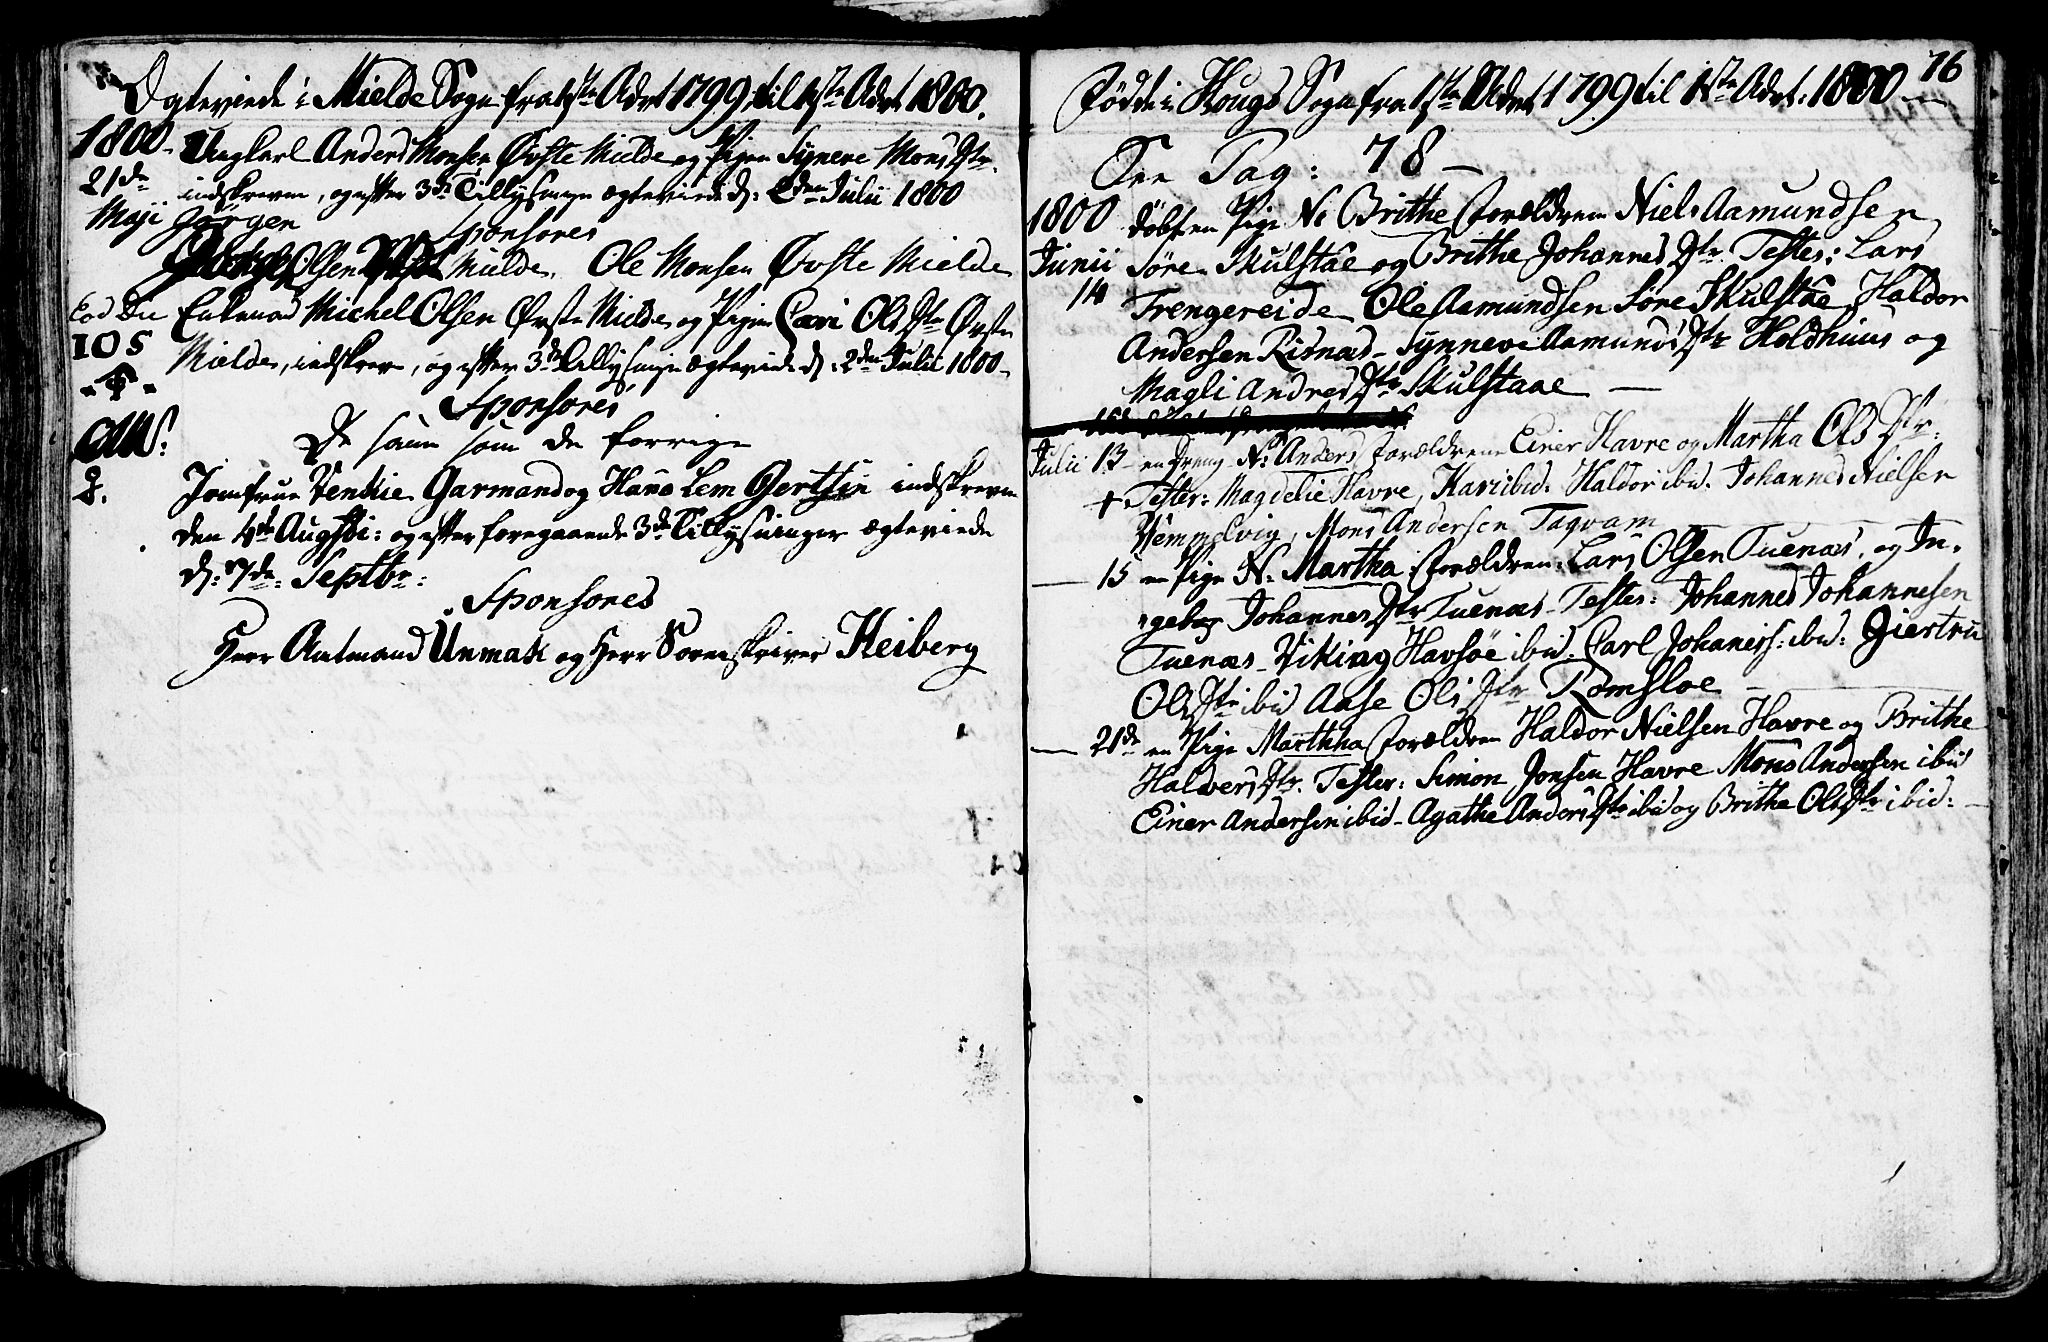 Ægteviede i Mielde Sogn fra 1ste Advt 1799 til 1ste Advt 1800.
1800 Ungkarl Anders Monsen Øvste Mielde og Pigen Synneve Mons Dtr.
21de indskreven, og efter 3de Tillysninger ægteviede d: 2den Julii 1800
Maji Jørgen Sponsores
Olsen Mielde. Ole Monsen Øvste Mielde
Eod Die Enkemand Michel Olsen Øvste Mielde og Pigen Cari Ols Dtr Øvste
105 Mielde, indskrev, og efter 3de Tillysninger ægteviede d: 2den Julii 1800
Sponsores
De samme som de forrige
Jomfrue Venkie Garmand og Hans Lem Gertsen indskreven
den 4de Augsti: og efter foregaaende 3de Tillysninger ægteviede
d: 7de Septbr:
Sponsores
Herr Amtmand Unmak og Herr Sorenskriver Heiberg
76
Fødde i Hougs Sogn fra 1ste Advt 1799 til 1ste Advt: 1800
See Pag: 78
1800 døbt en Pige N: Brithe Forældrene Niels Aamundsen
Junii Søre Skulstæ og Brithe Johannes Dtr. Testes: Lars
14 Trengereide Ole Aamundsen Søre Skulstæ Haldor
Andersen Risnæs - Synneve Aamunds Dtr Holdhuus og
Magli Andres Dtr Skulstaae
Julii 13 en Dreng N: Anders Forældrene Einer Havre og Martha Ols Dtr:
+ Testes: Magdelie Havre, Kari ibid: Haldor ibid. Johannes Nielsen
Hemmelvig, Mons Andersen Taqvam
15 en Pige N: Martha Forældrene: Lars Olsen Tuenæs, og In-
gebor Johannes Dtr Tuenæs - Testes: Johannes Johannesen
Tuenæs - Viking Havsøe ibid. Carl Johaness: ibid: Giertru
Ols Dtr ibid Aase Ols Dtr Romsloe
21de en Pige Marthha Forældrene Haldor Nielsen Havre og Brithe
Haldvers Dtr. Testes: Simon Jonsen Havre Mons Andersen ibid
Einer Andersen ibid - Agathe Anders Dtr ibid og Brithe Ols Dtr ibid: